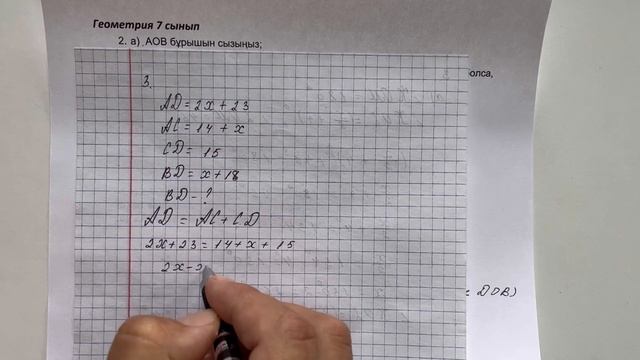 Геометрия 7 сынып
2. а) АОВ бұрышын сызыңыз;
олса,
3.
AD = 2x + 23
AC = 14 + x
CD = 15
BD = x + 18
BD - ?
AD = AC + CD
2x + 23 = 14 + x + 15
2x -
DOB)